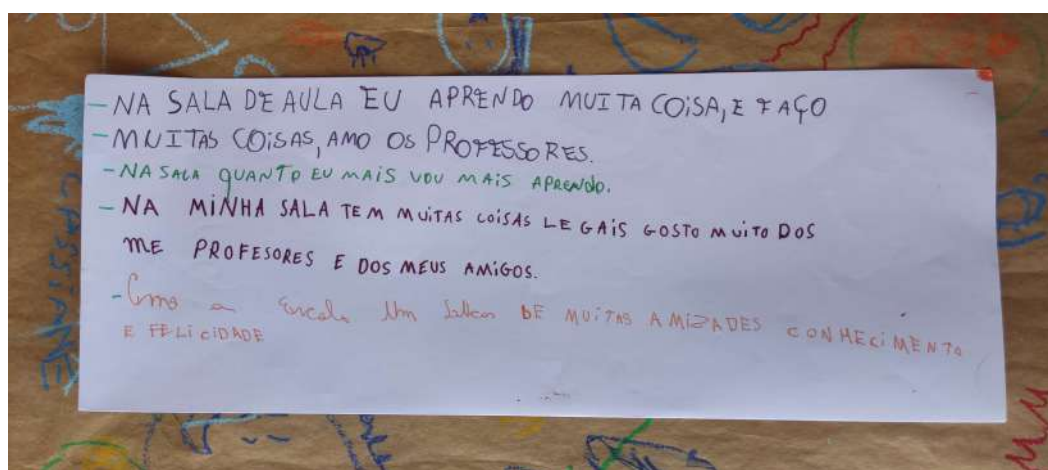 - NA SALA DE AULA EU APRENDO MUITA COISA, E FAÇO
- MUITAS COISAS, AMO OS PROFESSORES.
- NA SALA QUANTO EU MAIS VOU MAIS APRENDO.
- NA MINHA SALA TEM MUITAS COISAS LEGAIS GOSTO MUITO DOS
ME PROFESORES E DOS MEUS AMIGOS.
- a Escola Um DE MUITAS AMIZADES CONHECIMENTO
E FELICIDADE
CASSIANE